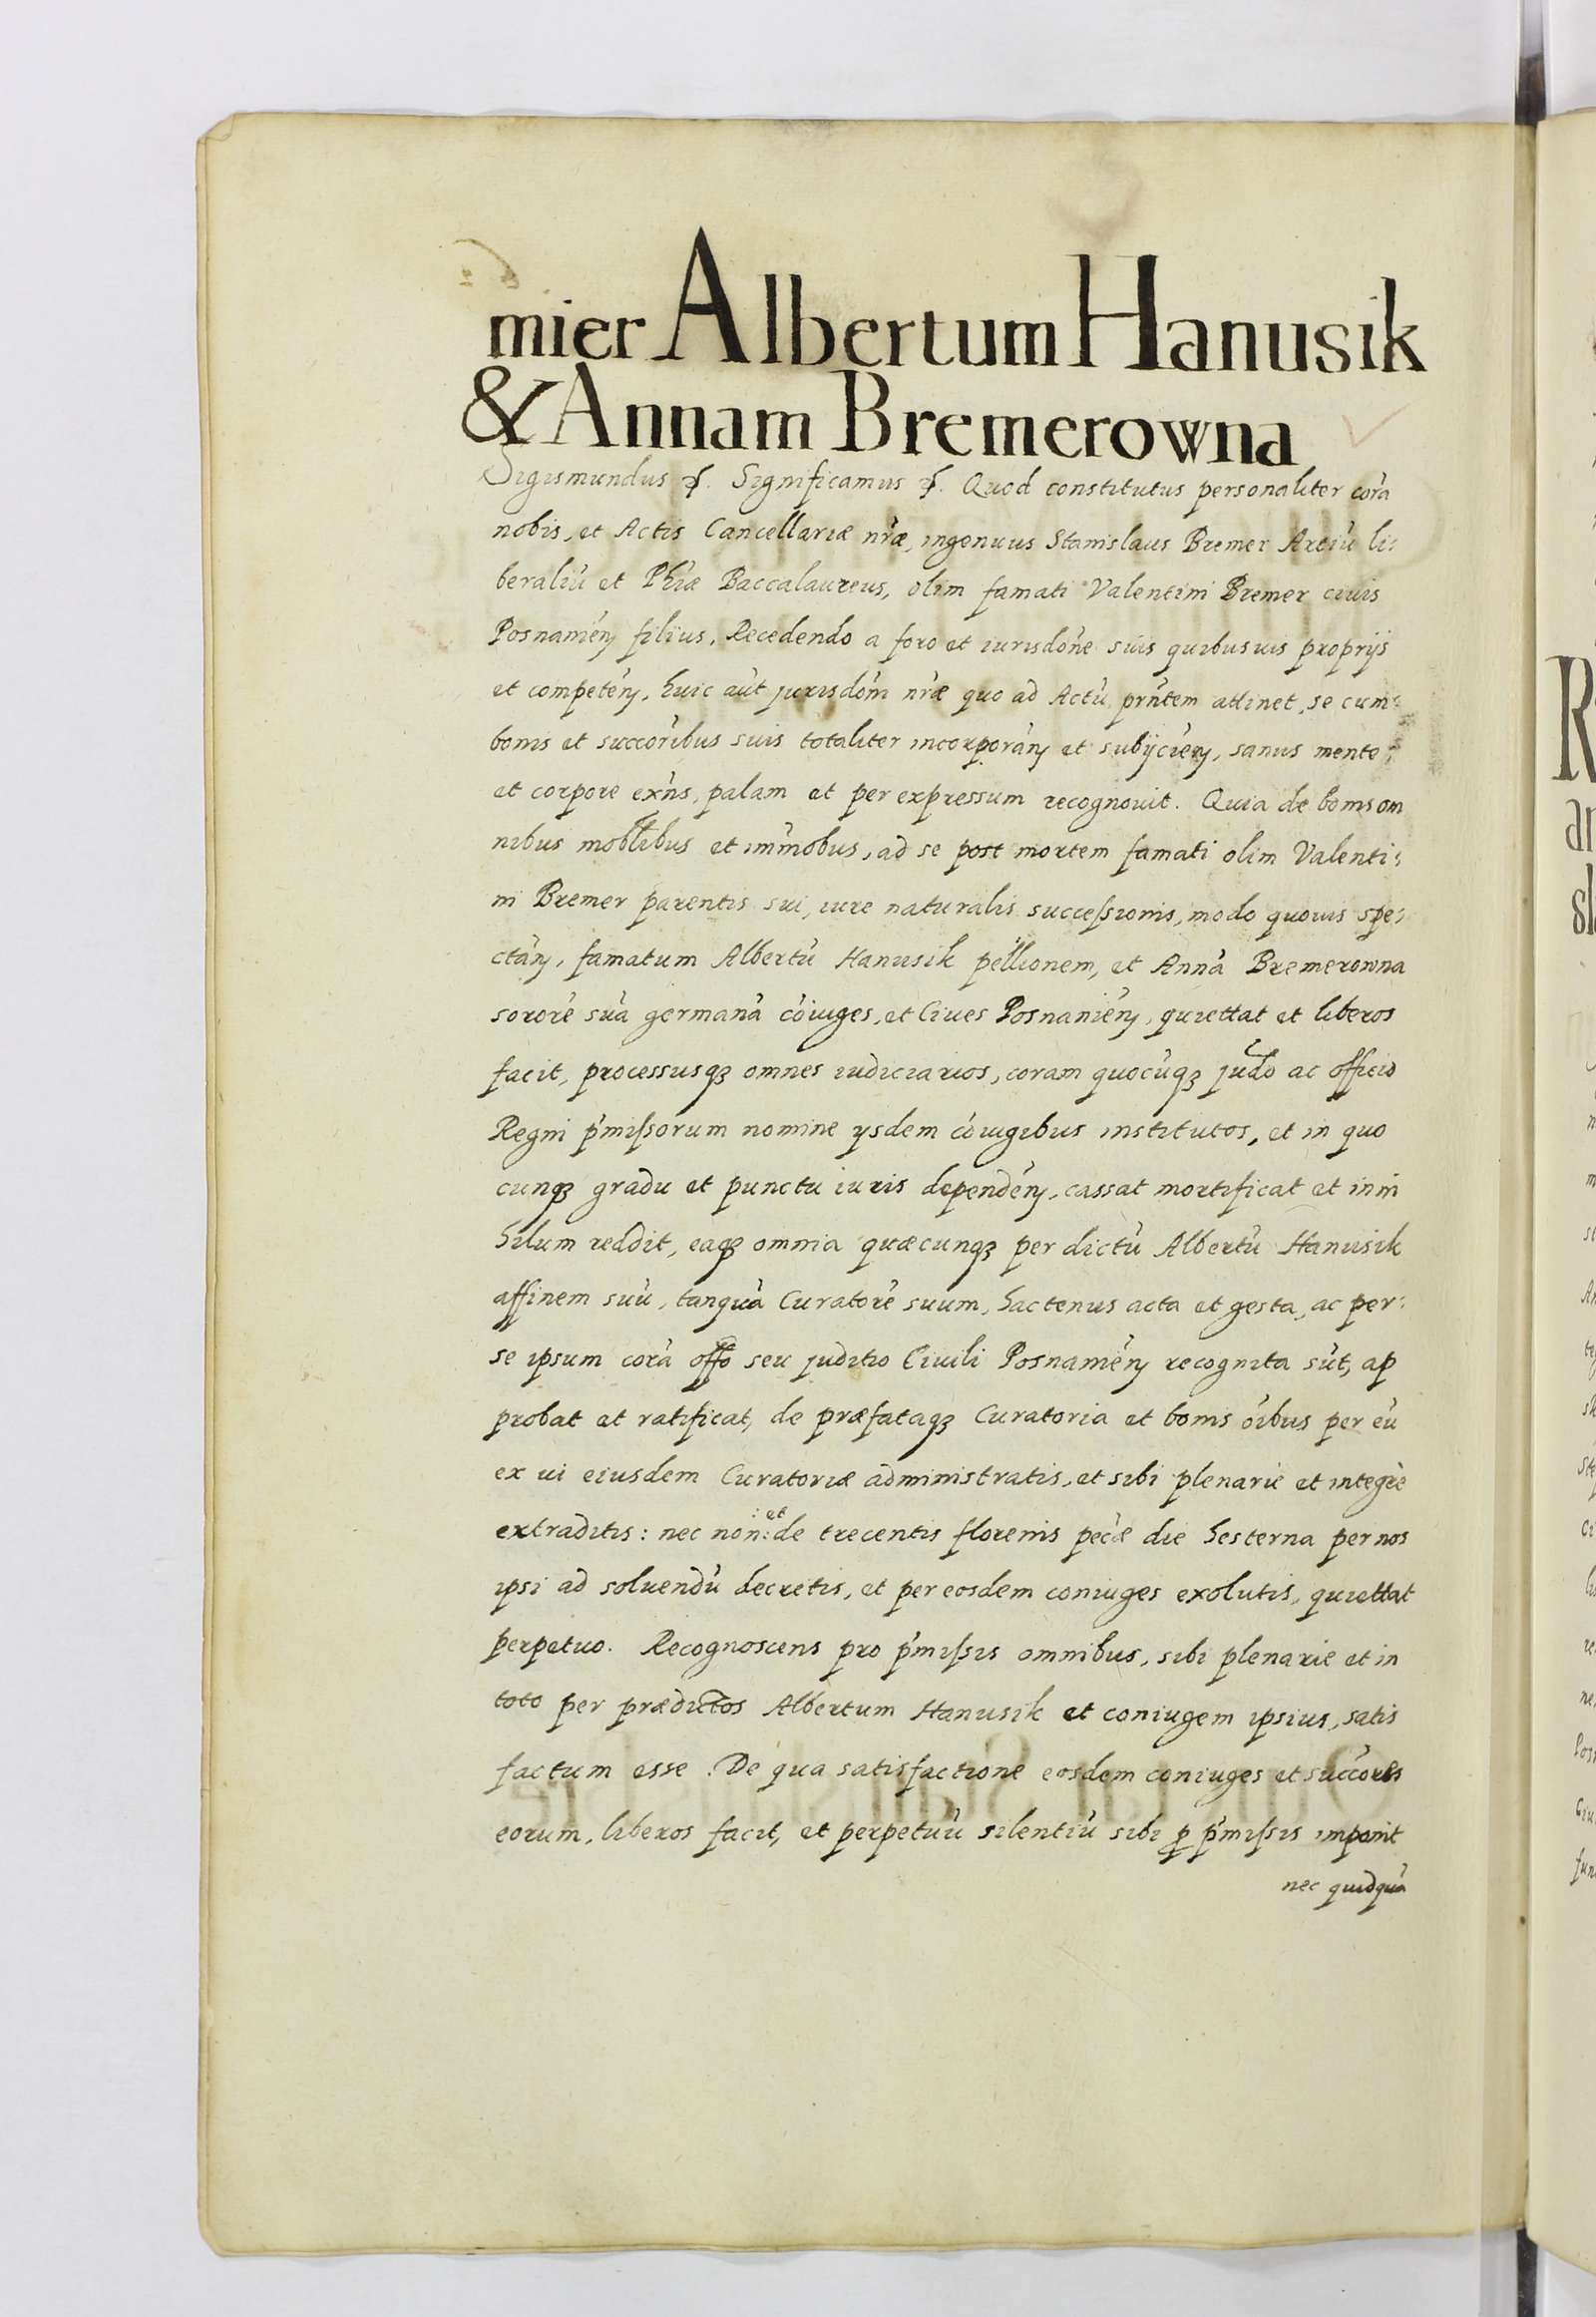 mier Albertum Hanusik
& Annam Bremerowna
Sigismundus ꝭ. Significamus ꝭ. Quod constitutus personaliter corã
nobis, et Actis Cancellariæ nr̃æ, ingenuus Stanislaus Bremer Artiũ li:
beraliũ et Phiæ Baccalaureus, olim famati Valentini Bremer ciuis
Posnanień filius, Recedendo a foro et iurisdõne suis quibusuis proprijs
et competeñ, huic aũt jurisdõni nr̃æ quo ad Actũ prñtem attinet, se cum
bonis et succoribus suis totaliter incorporañ et subijcieñ, sanus mente
et corpore exñs, palam et per expressum recognouit. Quia de bonis om
nibus moblibus et immobus, ad se post mortem famati olim Valenti:
ni Bremer parentis sui, iure naturalis successionis, modo quouis spe:
ctañ, famatum Albertũ Hanusik pellionem, et Annã Bremerowna
sororẽ suã germanã cõiuges, et Ciues Posnanień, quiettat et liberos
facit, processusqꝫ omnes iudiciarios, coram quocũqꝫ judo ac officio
Regni p̃missorum nomine ysdem cõiugibus institutos, et in quo
cunqꝫ gradu et punctu iuris dependeñ, cassat mortificat et in ni
hilum reddit, eaqꝫ omnia quæcunqꝫ per dictũ Albertũ Hanusik
affinem suũ, tanquã Curatorẽ suum, hactenus acta et gesta, ac per:
se ipsum corã offo seu juditio Ciuili Posnanień recognita sũt, ap
probat et ratificat, de præfataqꝫ Curatoria et bonis õibus per eũ
ex ui eiusdem Curatoriæ administratis, et sibi plenarie et integre
extraditis: nec non: et de trecentis florenis pecĩæ die hesterna per nos
ipsi ad soluendũ decretis, et per eosdem coniuges exolutis, quiettat
perpetuo. Recognoscens pro p̃missis omnibus, sibi plenarie et in
toto per prædictos Albertum Hanusik et coniugem ipsius, satis
factum esse. De qua satisfactione eosdem coniuges et succores
eorum, liberos facit, et perpetuũ silentiũ sibi ꝓ p̃missis imponit
nec quidquã